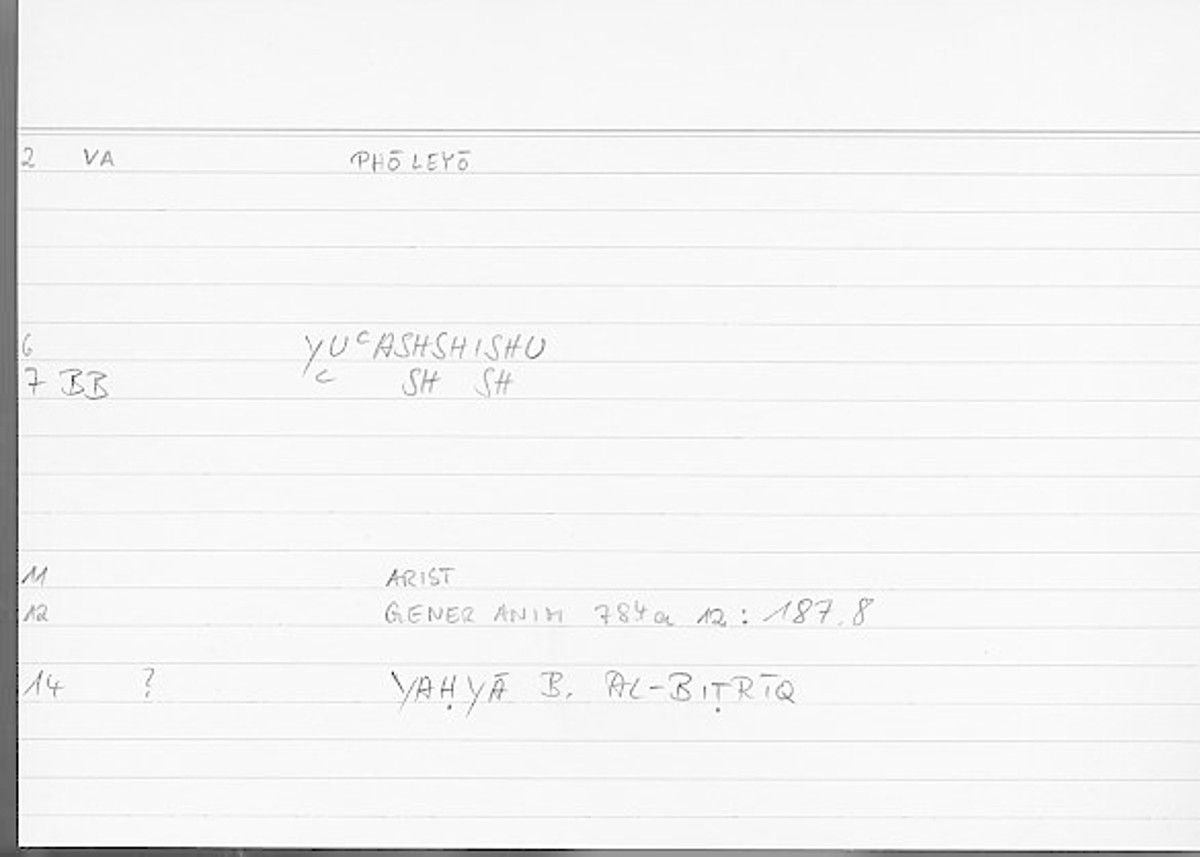 2 VA PHŌLEYŌ
6 YUᶜASHSHISHU
7 BB ᶜ SH SH
11 ARIST
12 GENER ANIM 784a 12 : 187.8
14 ? YAḤYĀ B. AL-BIṬRĪQ